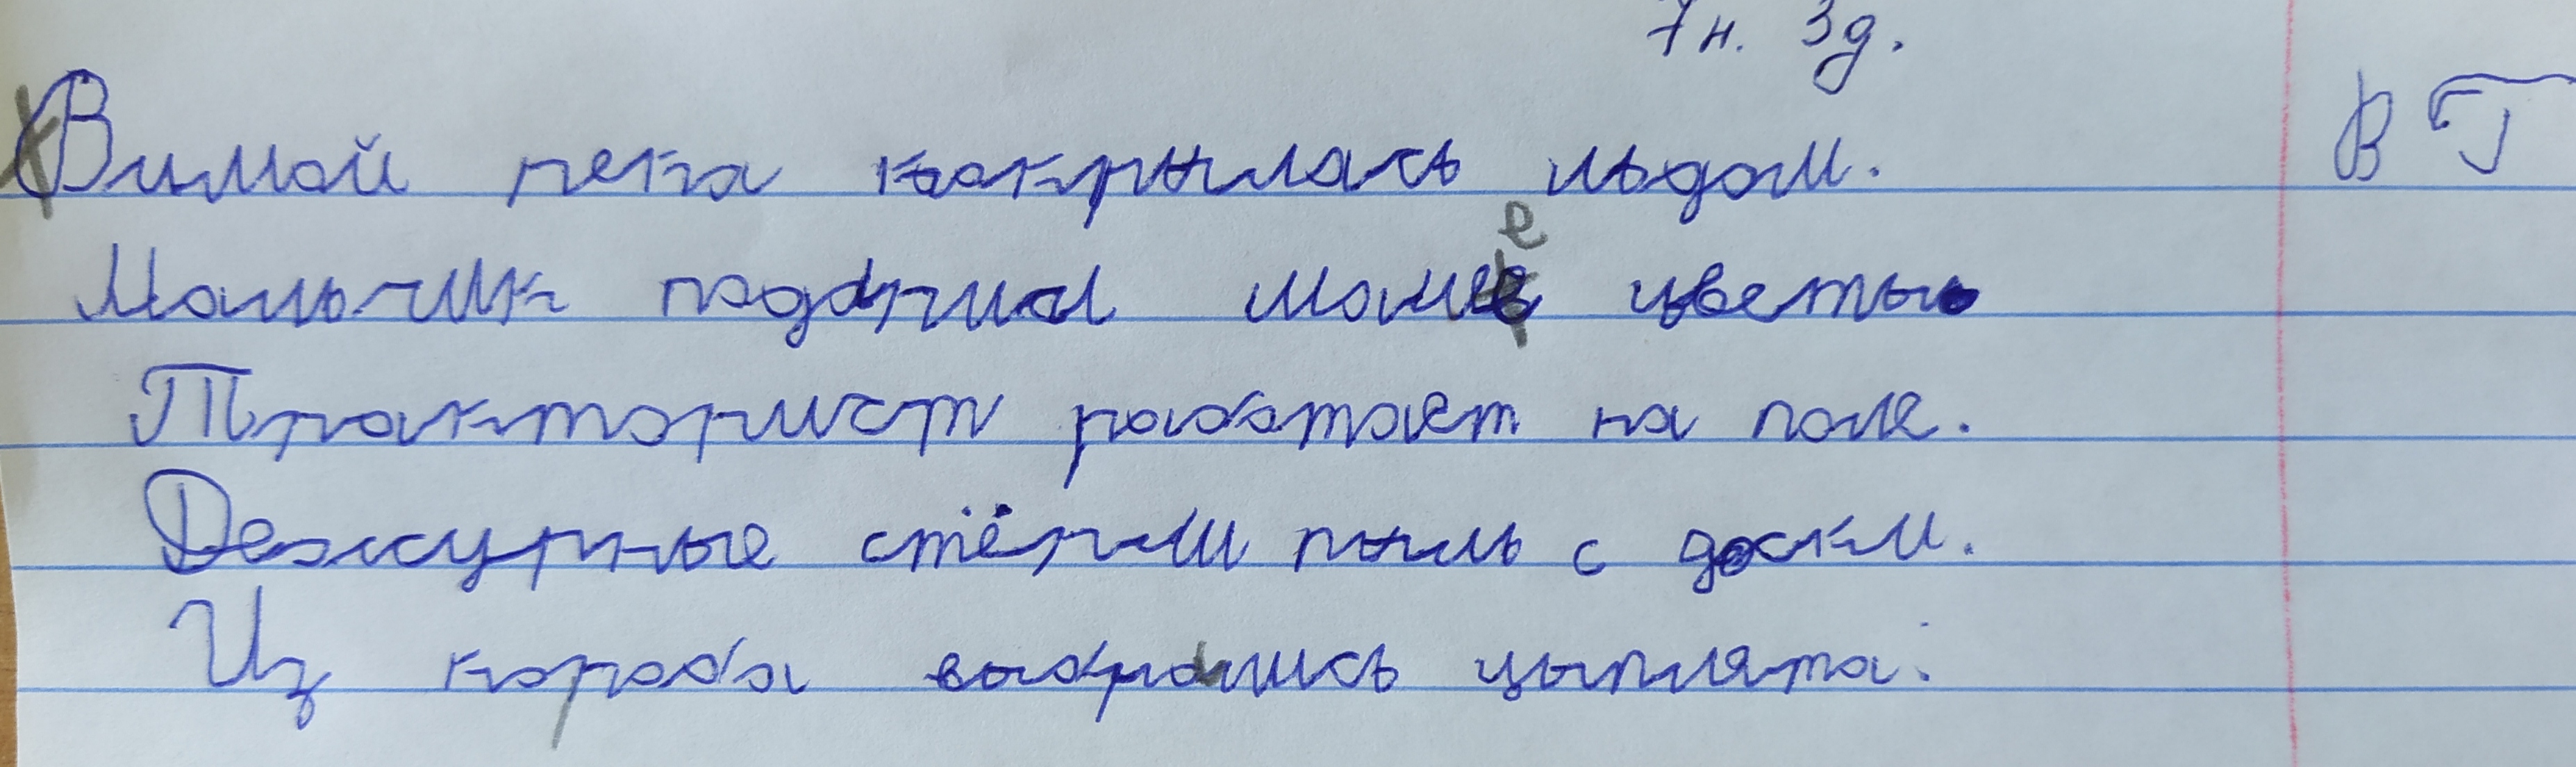 7н. 3д.
Вимой река кокрылась льдом. В Т
Мальчик подарил маме цветы
е
Тракторист работает на поле.
Дежурные стёрли пыль с доски.
Из короба выбрались цыплята.